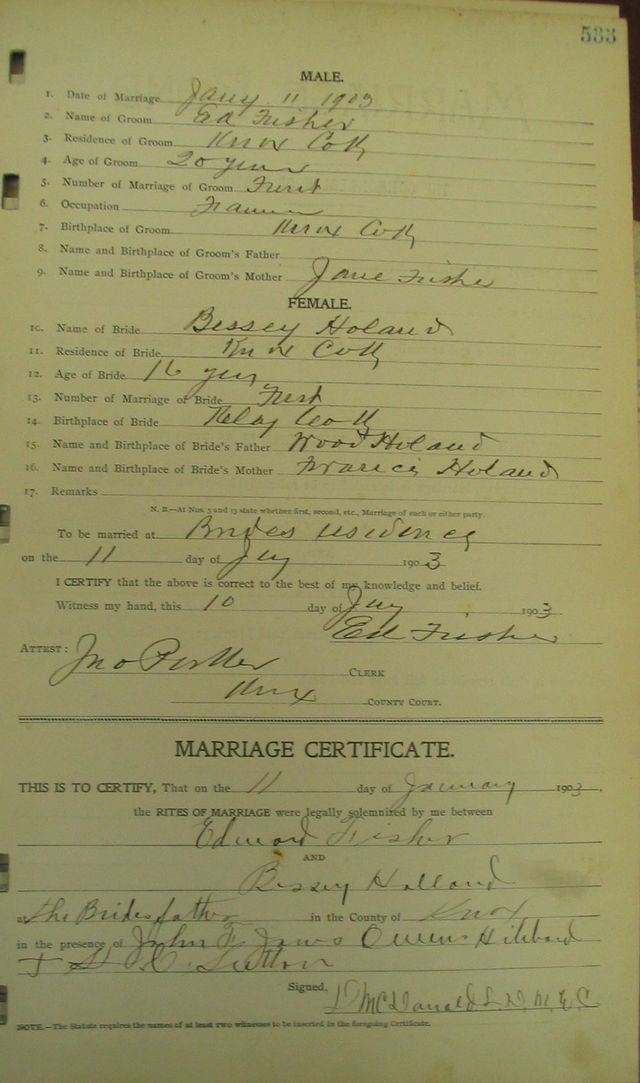 533
MALE.
1. Date of Marriage Jany 11 1903
2. Name of Groom Ed Fisher
3. Residence of Groom Knox Co Ky
4. Age of Groom 20 years
5. Number of Marriage of Groom First
6. Occupation Farmer
7. Birthplace of Groom Knox Co Ky
8. Name and Birthplace of Groom's Father
9. Name and Birthplace of Groom's Mother Jane Fisher
FEMALE.
10. Name of Bride Bessey Holand
11. Residence of Bride Knox Co Ky
12. Age of Bride 16 years
13. Number of Marriage of Bride First
14. Birthplace of Bride Clay Co Ky
15. Name and Birthplace of Bride's Father Wood Holand
16. Name and Birthplace of Bride's Mother Francis Holand
17. Remarks
N. B.—At Nos. 5 and 13 state whether first, second, etc., Marriage of each or either party.
To be married at Brides residence
on the 11 day of Jny 1903
I CERTIFY that the above is correct to the best of my knowledge and belief.
Witness my hand, this 10 day of Jny, 1903
Ed Fisher
ATTEST: Jno CLERK
Knox COUNTY COURT.
MARRIAGE CERTIFICATE.
THIS IS TO CERTIFY, That on the 11 day of January 1903.
the RITES OF MARRIAGE were legally solemnized by me between
Edward Fisher
AND
Bessey Holland
at the Brides father in the County of Knox
in the presence of John F Jones Owens Hibbard
+ Sutton
Signed, McDonald M. E. C
NOTE.—The Statute requires the names of at least two witnesses to be inserted in the foregoing Certificate.